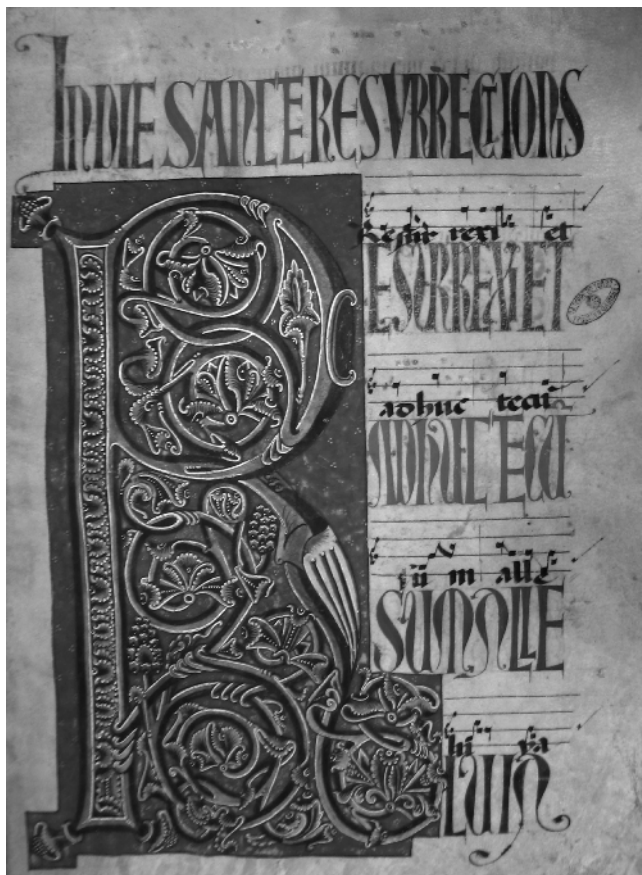 IN DIE SANCTE RESVRRECTIONIS
Resur rexi et
RESURREXI ET
adhuc tecū
ADHUC TECU
sū m alle
SUM ALLE
ya
LUIA